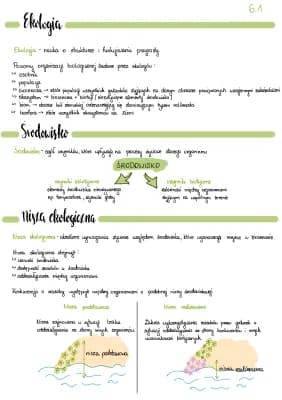 6.1
Ekologia
Ekologia - nauka o strukturze i funkcjonowaniu przyrody
Poziomy organizacji biologicznej badane przez ekologów:
↳ osobnik
↳ populacja
↳ biocenoza - zbiór populacji wszystkich gatunków żyjących na danym obszarze powiązanych wzajemnymi zależnościami
↳ ekosystem - biocenoza + biotop (nieożywione elementy środowiska)
↳ biom - obszar
↳ biosfera - zbiór wszystkich ekosystemów na Ziemi
Środowisko
Środowisko - ogół warunków, które wpływają na procesy życiowe danego organizmu
ŚRODOWISKO
czynniki abiotyczne
czynniki biotyczne
elementy środowiska nieożywionego
zależności między organizmami
np. temperatura,
żyjącymi na wspólnym terenie
Nisza ekologiczna
Nisza ekologiczna - określone wymagania życiowe względem środowiska, które wyznaczają miejsce w biocenozie.
Nisza ekologiczna obejmuje:
↳ warunki środowiska
↳ dostępność zasobów w środowisku
↳ oddziaływania między organizmami
Konkurencja o zasoby występuje między organizmami o podobnej niszy ekologicznej
Nisza podstawowa
Nisza realizowana
Nisza zajmowana w sytuacji braku
oddziaływania ze strony innych organizmów
Zakres wykorzystywania zasobów przez gatunek w
sytuacji oddziaływania ze strony konkurentów i innych
nisza podstawowa
nisza realizowana